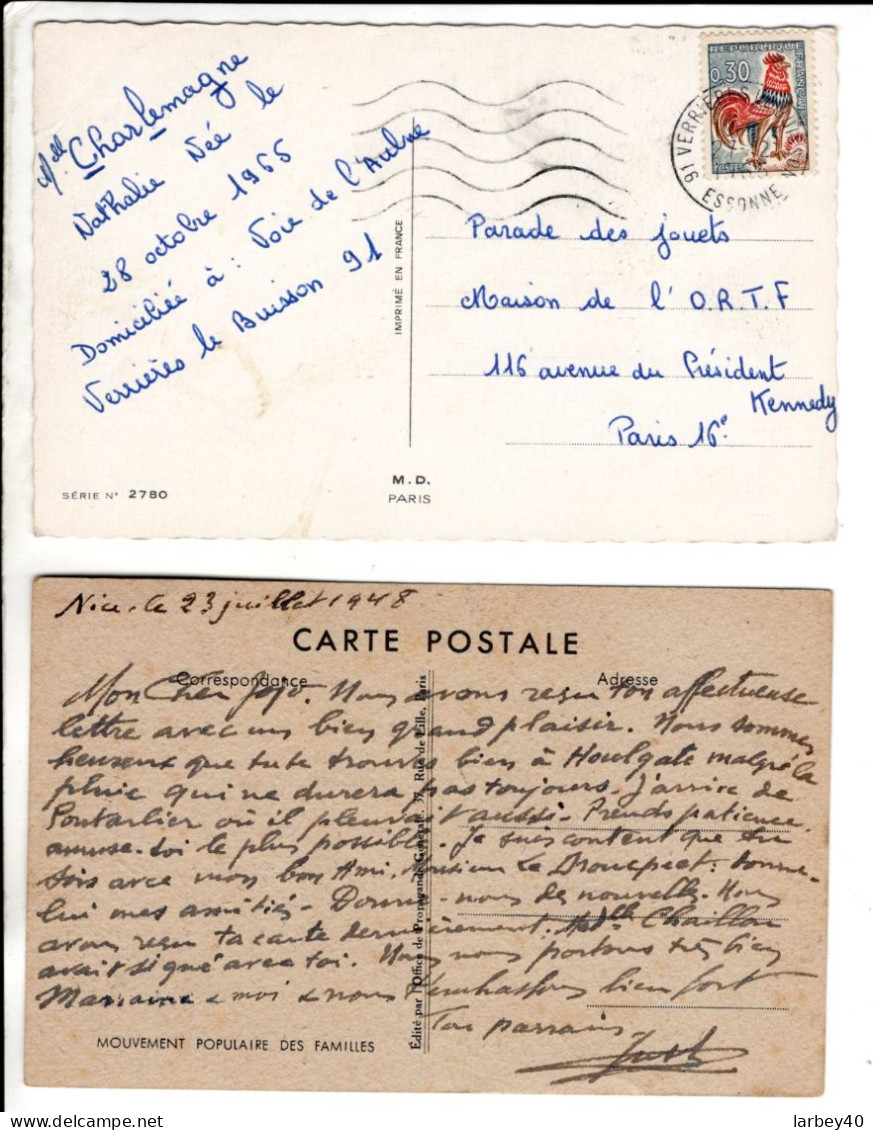 Mlle Charlemagne
Nathalie Née le
28 octobre 1965
Domiciliée à : Voie de l'Aulne
Verrières le Buisson 91
SÉRIE N° 2780
IMPRIMÉ EN FRANCE
M.D.
PARIS
REPUBLIQUE FRANCAISE
0,30
POSTES
91 VERRIERES
ESSONNE
Parade des jouets
Maison de l'O.R.T.F
116 avenue du Président
Kennedy
Paris 16e
Nice. le 23 juillet 1948
CARTE POSTALE
Correspondance
Adresse
Mon Cher Jojo. Nous avons reçu ton affectueuse
lettre avec un bien grand plaisir. Nous sommes
heureux que tu te trouves bien à Houlgate malgré la
pluie qui ne durera pas toujours. J'arrive de
Pontarlier où il pleuvait aussi. Prends patience
amuse-toi le plus possible. Je suis content que tu
sois avec mon bon Ami, Monsieur Le : donne-
lui mes amitiés. Donne-nous des nouvelles. Nous
avons reçu ta carte dernièrement. Melle Chaillou
avait signé avec toi. Nous nous portons très bien
Marraine & moi & nous t'embrassons bien fort
Ton parrain.
Édité par l'Office de Propagande Générale, 37, Rue de Lille, Paris
MOUVEMENT POPULAIRE DES FAMILLES
larbey40